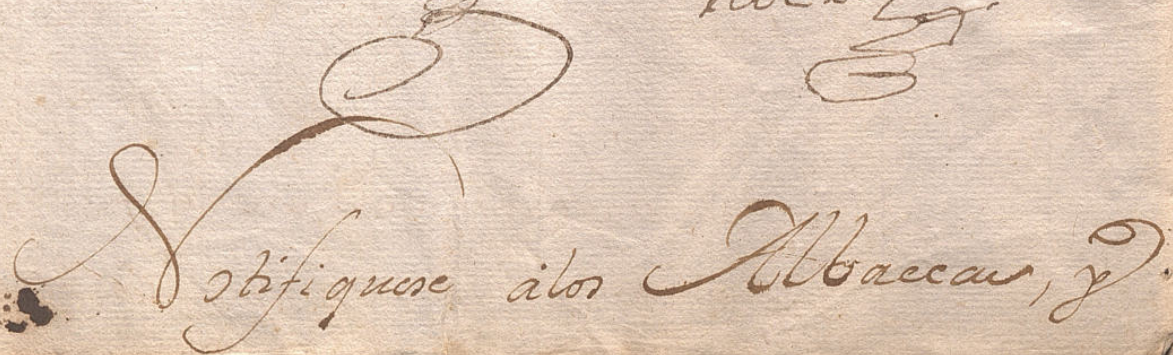 Notifiquese àlos Albaceas, y